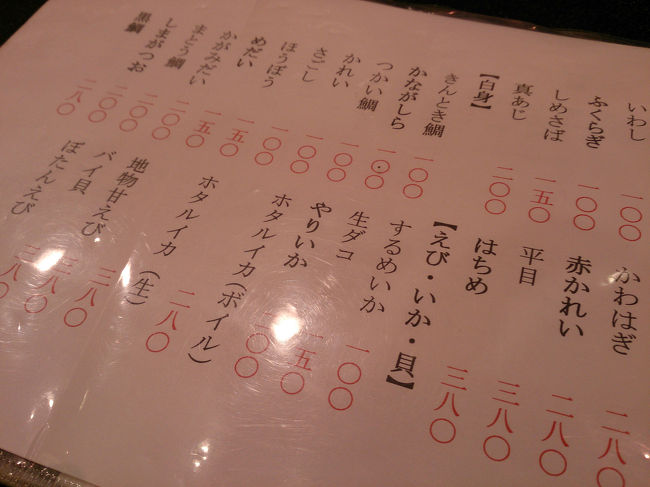 いわし 一〇〇
ふくらぎ 一〇〇
しめさば 一五〇
真あじ 二〇〇
【白身】
きんとき鯛 一〇〇
かながしら 一〇〇
つかい鯛 一〇〇
かれい 一〇〇
さごし 一〇〇
ほうぼう 一五〇
めだい 一五〇
かがみだい 二〇〇
まとう鯛 二〇〇
しまがつお 二〇〇
黒鯛 二八〇
かわはぎ 二八〇
赤かれい 二八〇
平目 三八〇
はちめ 三八〇
【えび・いか・貝】
するめいか 一〇〇
生ダコ 一五〇
やりいか 〇〇
ホタルイカ（ボイル）
ホタルイカ（生） 二八〇
地物甘えび 三八〇
バイ貝 三八〇
ぼたんえび 三八〇